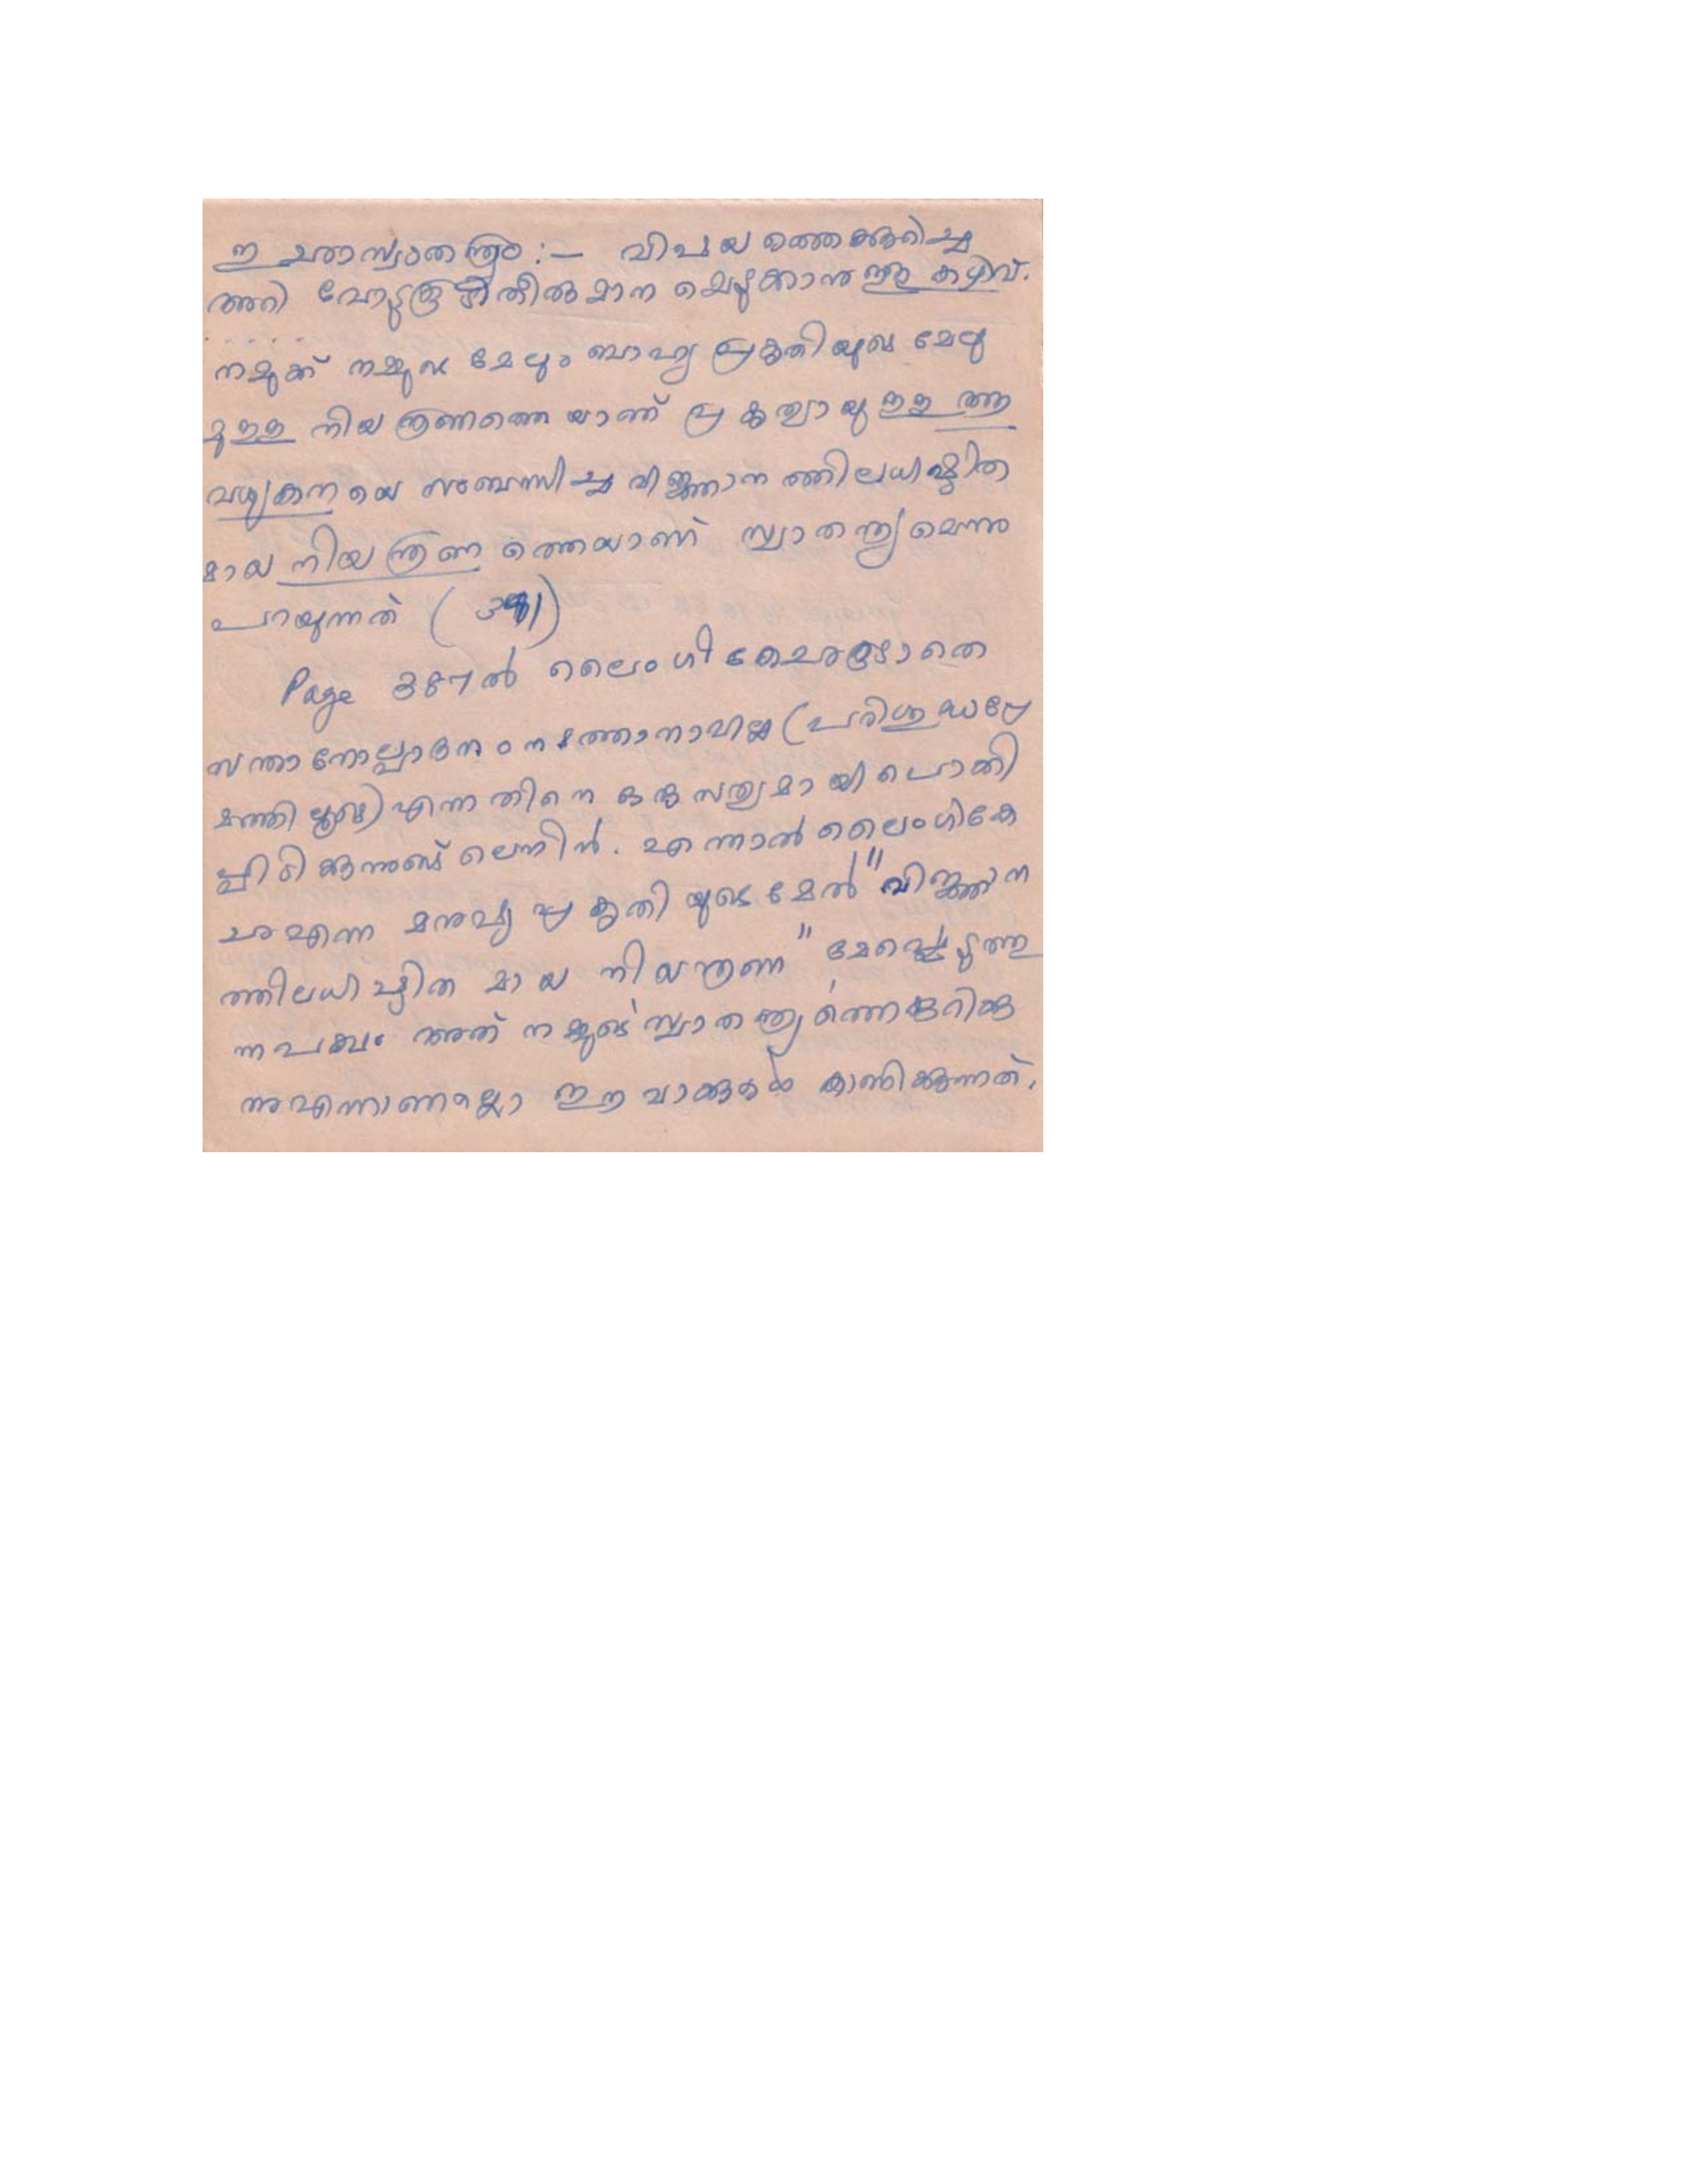 ഇച്ഛാസ്വാതന്ത്ര്യം :- വിഷയത്തെക്കുറിച്ച
അറിവോടുകൂടി തീരുമാനമെടുക്കാനുള്ള കഴിവ്.
.....
നമുക്ക് നമ്മുടെ മേലും ബാഹ്യ പ്രകൃതിയുടെ മേലു
മുള്ള നിയന്ത്രണത്തെയാണ് പ്രകൃത്യായുള്ള ആ
വശ്യകതയെ സംബന്ധിച്ച വിജ്ഞാനത്തിലധിഷ്ഠിത
മായ നിയന്ത്രണത്തെയാണ് സ്വാതന്ത്ര്യമെന്നു
പറയുന്നത് (391)
Page 387ൽ ലൈംഗികേച്ഛകൂടാതെ
സന്താനോല്പാദനം നടത്താനാവില്ല (പരിശുദ്ധപ്രേ
മത്തിലൂടെ) എന്നതിനെ ഒരു സത്യമായി പൊക്കി
പ്പിടിക്കുന്നുണ്ട് ലെനിൻ. എന്നാൽ ലൈംഗികേ
ച്ഛ എന്ന മനുഷ്യ പ്രകൃതിയുടെ മേൽ "വിജ്ഞാന
ത്തിലധിഷ്ഠിതമായ നിയന്ത്രണ" മേർപ്പെടുത്തു
ന്നപക്ഷം അത് നമ്മുടെ സ്വാതന്ത്ര്യത്തെക്കുറിക്കു
ന്നു എന്നാണല്ലോ ഈ വാക്കുകൾ കാണിക്കുന്നത്.